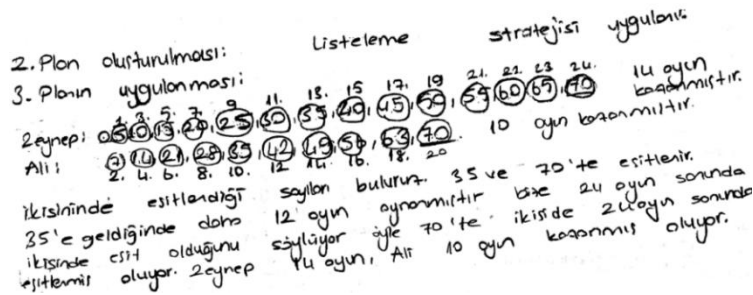 2. Plan oluşturulması: Listeleme stratejisi uygulanır
3. Planın uygulanması:
1. 3. 5. 7. 9 11. 13. 15 17. 19 21. 22. 23 24.
Zeynep: 0, 5, 10, 15, 20, 25, 30, 35, 40, 45, 50, 55, 60, 65, 70 14 oyun kazanmıştır.
Ali: 7, 14, 21, 28, 35, 42, 49, 56, 63, 70. 10 oyun kazanmıştır.
2. 4. 6. 8. 10. 12 14. 16. 18. 20
ikisininde eşitlendiği sayıları buluruz. 35 ve 70'te eşitlenir.
35'e geldiğinde daha 12 oyun oynanmıştır bize 24 oyun sonunda
ikisinde eşit olduğunu söylüyor öyle 70'te. ikiside 24 oyun sonunda
eşitlenmiş oluyor. Zeynep 14 oyun, Ali 10 oyun kazanmış oluyor.